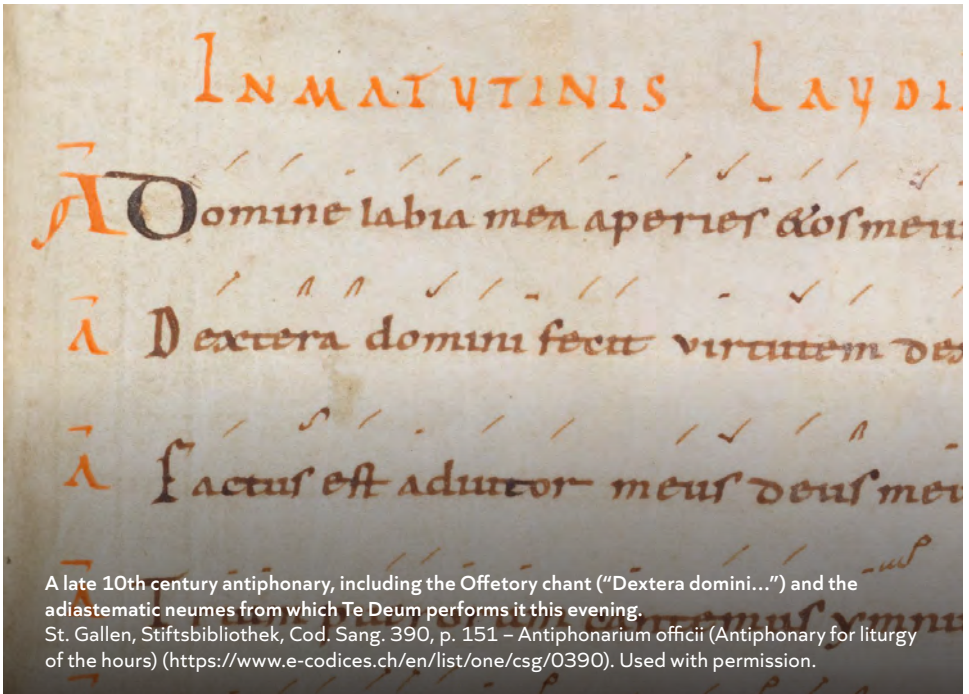 INMATUTINIS LAUDI
A Domine labia mea aperies &os meu
A Dextera domini fecit virtutem dex
A Factus est adiutor meus deus meu
A late 10th century antiphonary, including the Offetory chant (“Dextera domini…”) and the
adiastematic neumes from which Te Deum performs it this evening.
St. Gallen, Stiftsbibliothek, Cod. Sang. 390, p. 151 – Antiphonarium officii (Antiphonary for liturgy
of the hours) (https://www.e-codices.ch/en/list/one/csg/0390). Used with permission.